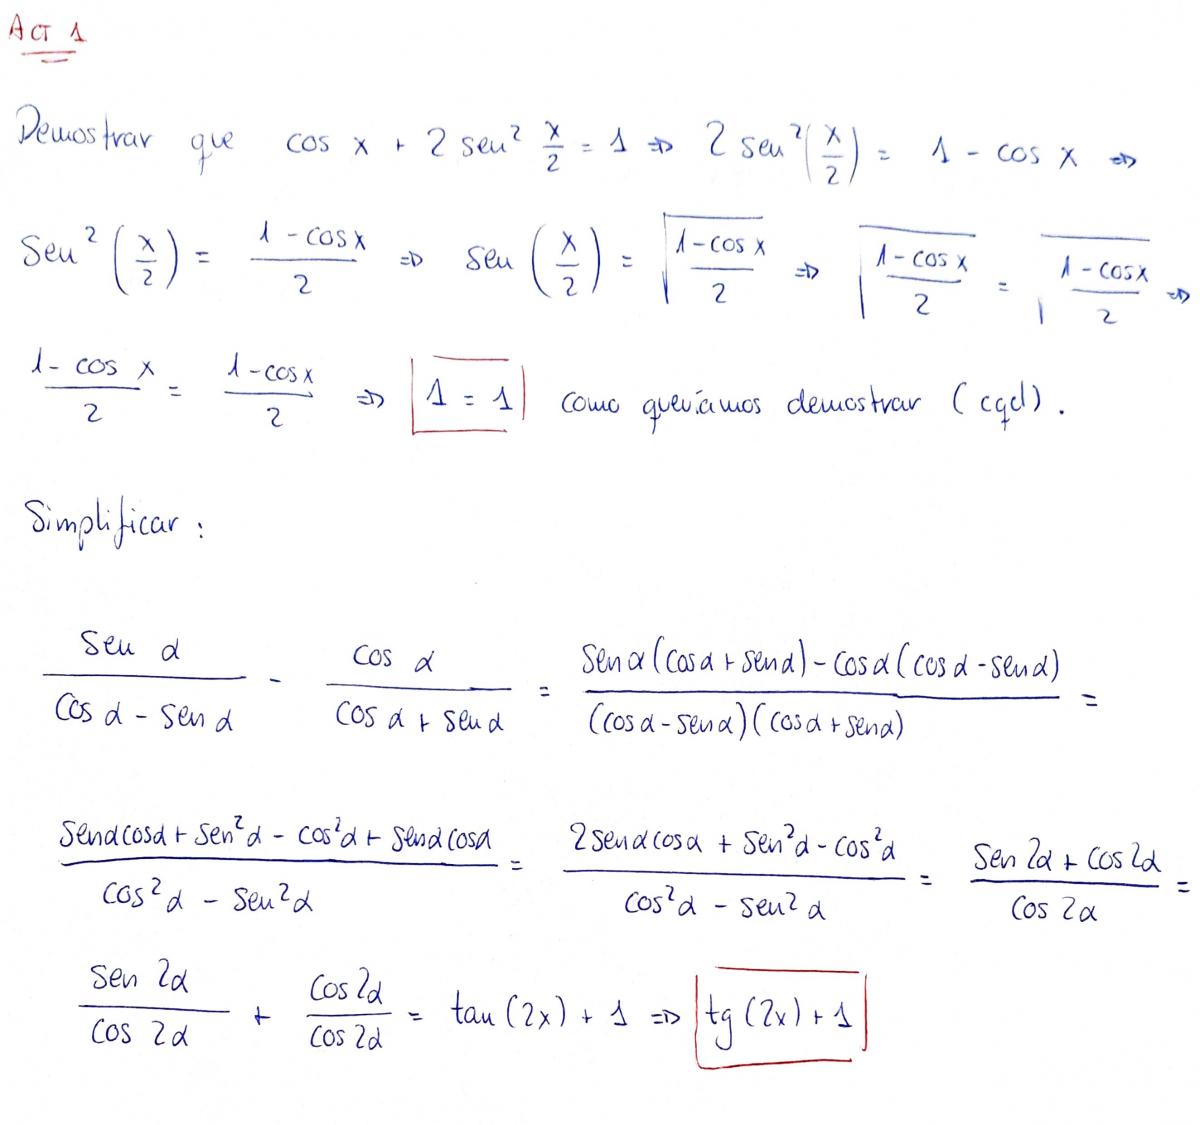 Act 1
Demostrar que cos x + 2 sen² x/2 = 1 ⇒ 2 sen² (x/2) = 1 - cos x ⇒
Sen² (x/2) = (1 - cos x)/2 ⇒ sen (x/2) = √((1 - cos x)/2) ⇒ √((1 - cos x)/2) = √((1 - cos x)/2) ⇒
(1 - cos x)/2 = (1 - cos x)/2 ⇒ 1 = 1 como queríamos demostrar (cqd).
Simplificar:
sen α/(cos α - sen α) - cos α/(cos α + sen α) = (sen α (cos α + sen α) - cos α (cos α - sen α))/((cos α - sen α)(cos α + sen α)) =
(sen α cos α + sen² α - cos² α + sen α cos α)/(cos² α - sen² α) = (2 sen α cos α + sen² α - cos² α)/(cos² α - sen² α) = (sen 2α + cos 2α)/(cos 2α) =
sen 2α/cos 2α + cos 2α/cos 2α = tan (2x) + 1 ⇒ tg (2x) + 1